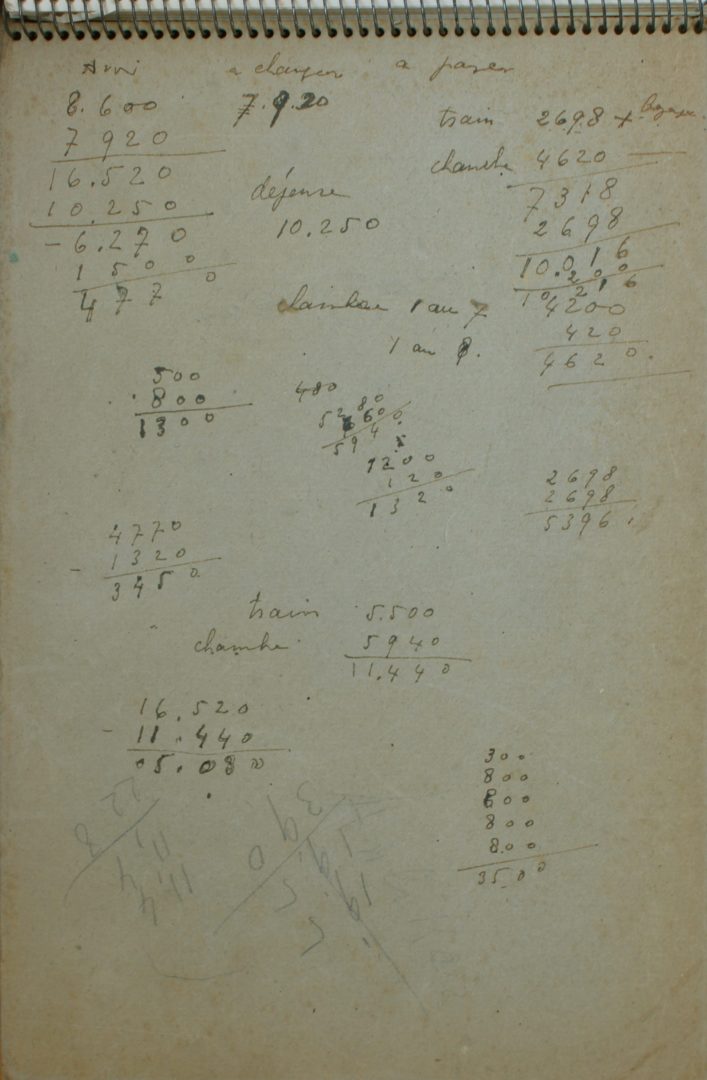 a changer a payer
8.600
7920
16.520
10.250
- 6.270
1500
4770
7.920
défense
10.250
train 2698 +
chambre 4620
7318
2698
10.016
200
10216
4200
420
4620.
chambre 1 au 7
1 au 8.
500
800
1300
480
5280
660
5940
1200
120
1320
2698
2698
5396
4770
- 1320
3450
train 5.500
chambre 5940
11.440
16.520
- 11.440
05.080
300
800
800
800
800
3500